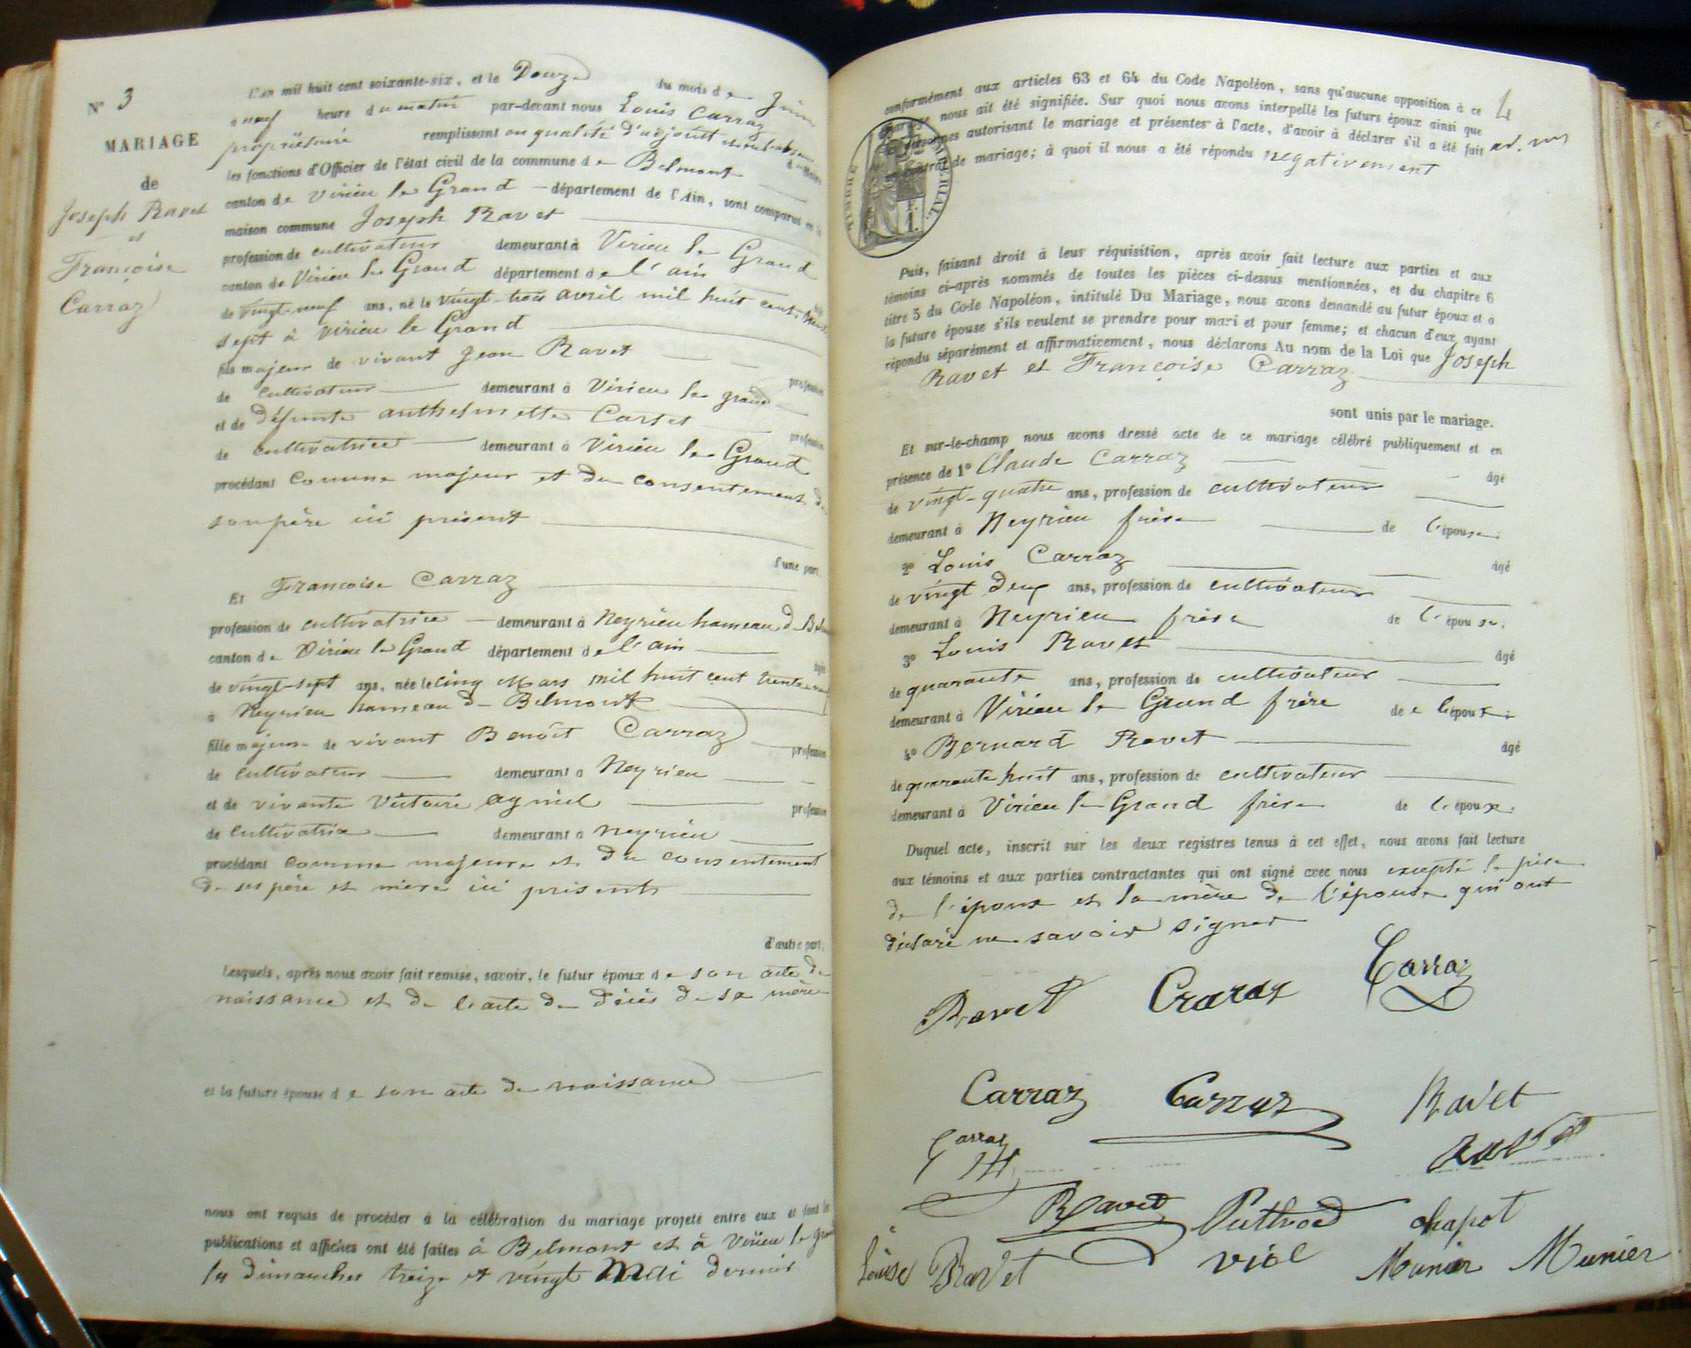 N° 3
MARIAGE
de
Joseph Ravet
et
Françoise
Carraz
L'an mil huit cent soixante-six, et le Douze du mois de Juin
à neuf heure du matin par-devant nous Louis Carraz
propriétaire remplissant en qualité d'adjoint
les fonctions d'Officier de l'état civil de la commune de Belmont
canton de Virieu le Grand département de l'Ain, sont comparus en la
maison commune Joseph Ravet
profession de cultivateur demeurant à Virieu le Grand
canton de Virieu le Grand département de l'ain
de vingt-neuf ans, né le vingt-trois avril mil huit cent trente
sept à Virieu le Grand
fils majeur de vivant Jean Ravet profession
de cultivateur demeurant à Virieu le grand
et de défunte anthelmette Carset profession
de cultivatrice demeurant à Virieu le Grand
procédant comme majeur et du consentement de
son père ici présent
d'une part,
Et Francoise Carraz
profession de cultivatrice demeurant à Neyrieu hameau de Belmont
canton de Virieu le Grand département de l'ain
de vingt-sept ans, née le cinq Mars mil huit cent trente neuf
à Neyrieu hameau de Belmont
fille majeure de vivant Benoît Carraz profession
de cultivateur demeurant à Neyrieu
et de vivante Victoire aymel profession
de cultivatrice demeurant à neyrieu
procédant comme majeure et du consentement
de ses père et mère ici présents
d'autre part,
Lesquels, après nous avoir fait remise, savoir, le futur époux de son acte de
naissance et de l'acte de décès de sa mère
et la future épouse de son acte de naissance
nous ont requis de procéder à la célébration du mariage projeté entre eux et dont les
publications et affiches ont été faites à Belmont et à Virieu le grand
les dimanches treize et vingt Mai dernier
4
conformément aux articles 63 et 64 du Code Napoléon, sans qu'aucune opposition à ce
mariage nous ait été signifiée. Sur quoi nous avons interpellé les futurs époux ainsi que
les personnes autorisant le mariage et présentes à l'acte, d'avoir à déclarer s'il a été fait
un contrat de mariage; à quoi il nous a été répondu négativement
TIMBRE IMPERIAL
Puis, faisant droit à leur réquisition, après avoir fait lecture aux parties et aux
témoins ci-après nommés de toutes les pièces ci-dessus mentionnées, et du chapitre 6
titre 5 du Code Napoléon, intitulé Du Mariage, nous avons demandé au futur époux et à
la future épouse s'ils veulent se prendre pour mari et pour femme; et chacun d'eux ayant
répondu séparément et affirmativement, nous déclarons Au nom de la Loi que Joseph
Ravet et Françoise Carraz
sont unis par le mariage.
Et sur-le-champ nous avons dressé acte de ce mariage célébré publiquement et en
présence de 1° Claude Carraz âgé
de vingt-quatre ans, profession de cultivateur
demeurant à Neyrieu frère de l'épouse;
2° Louis Carraz âgé
de vingt deux ans, profession de cultivateur
demeurant à Neyrieu frère de l'épouse;
3° Louis Ravet âgé
de quarante ans, profession de cultivateur
demeurant à Virieu le Grand frère de l'époux;
4° Bernard Ravet âgé
de quarante huit ans, profession de cultivateur
demeurant à Virieu le Grand frère de l'époux.
Duquel acte, inscrit sur les deux registres tenus à cet effet, nous avons fait lecture
aux témoins et aux parties contractantes qui ont signé avec nous excepté le père
de l'époux et la mère de l'épouse qui ont
déclaré ne savoir signer
Ravet Craraz Carraz
Carraz Carraz Ravet
Carraz
Ravet
Ravet Puthod chapot
Louise Ravet viol Munier Munier